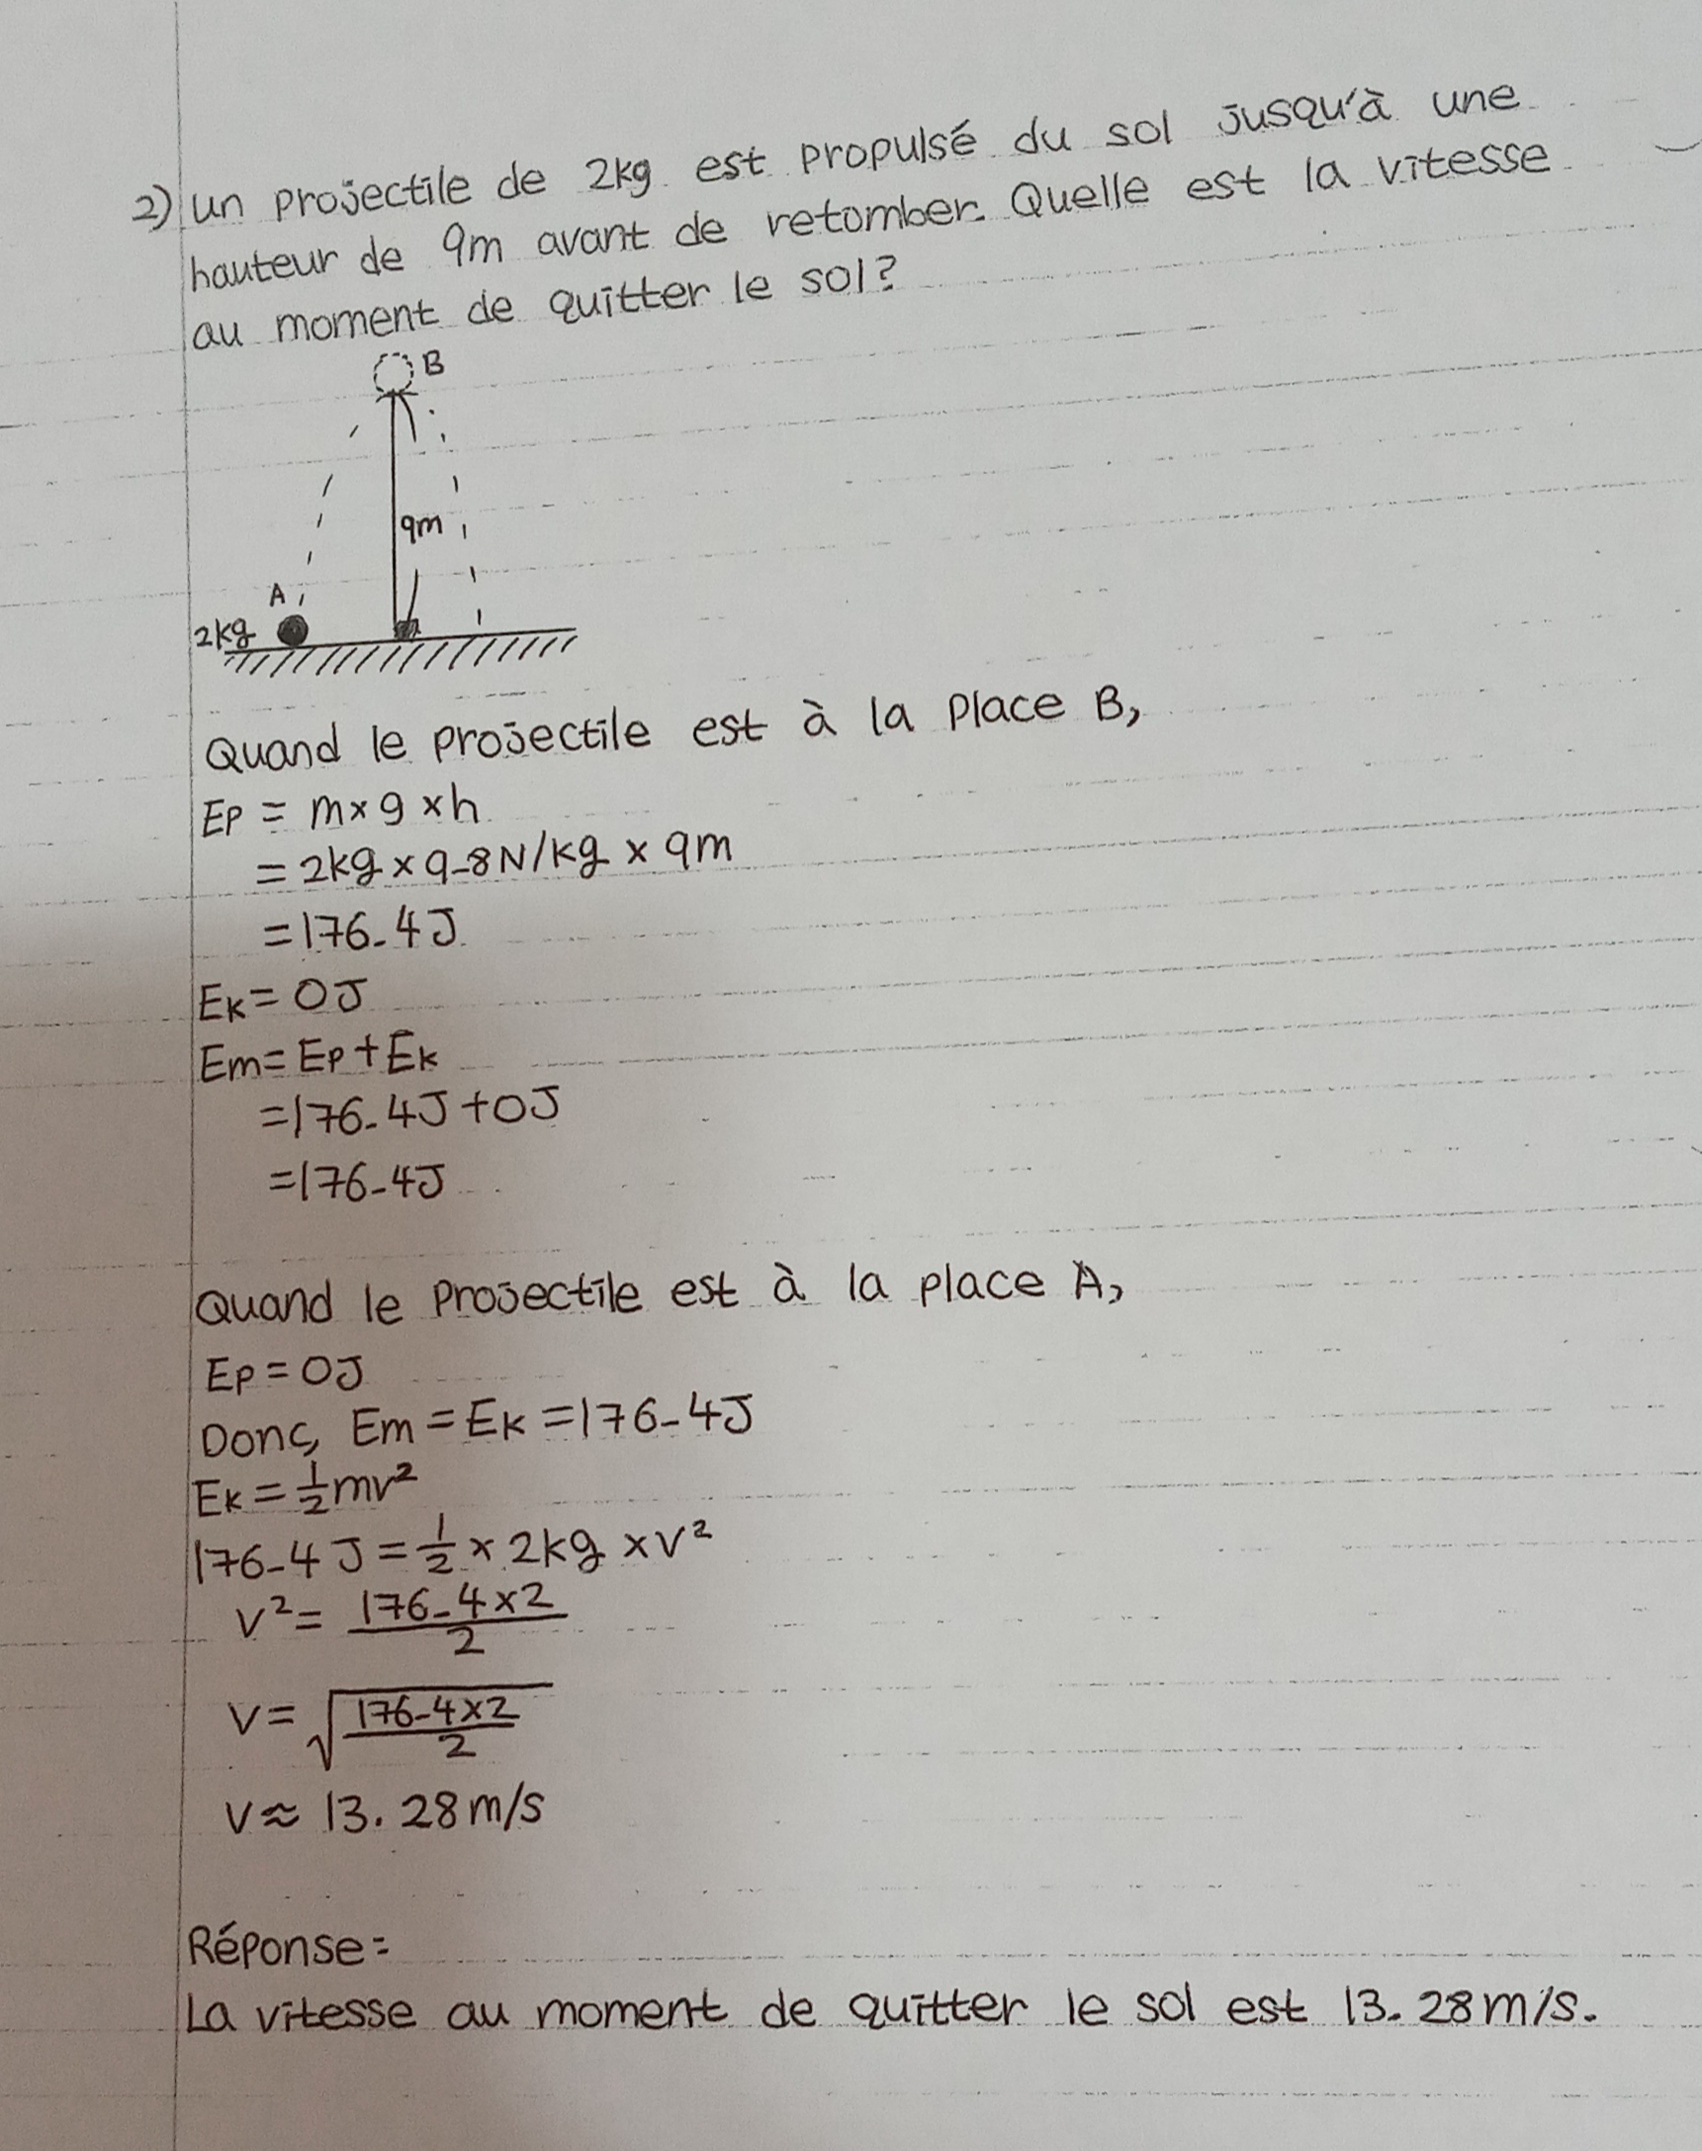 2) un projectile de 2kg est propulsé du sol jusqu'à une
hauteur de 9m avant de retomber. Quelle est la vitesse
au moment de quitter le sol?
B
9m
A
2kg
Quand le projectile est à la place B,
Ep = m×g×h
= 2kg × 9.8N/kg × 9m
= 176.4J
Ek = 0J
Em = Ep + Ek
= 176.4J + 0J
= 176.4J
Quand le projectile est à la place A,
Ep = 0J
Donc, Em = Ek = 176.4J
Ek = 1/2 mv²
176.4 J = 1/2 × 2kg × v²
v² = 176.4×2 / 2
v = √(176.4×2 / 2)
v ≈ 13.28m/s
Réponse:
La vitesse au moment de quitter le sol est 13.28m/s.